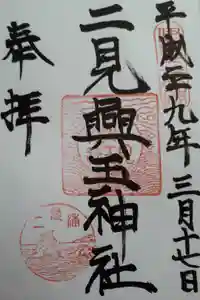 平成二十九年三月十七日
二見興玉神社
奉拝